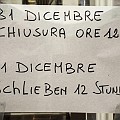 31 DICEMBRE
CHIUSURA ORE 12
31 DICEMBRE
SCHLIEßEN 12 STUND